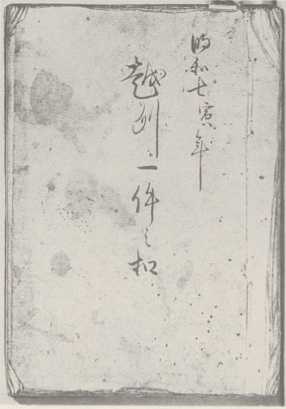 明和七寅年
越州一件之扣